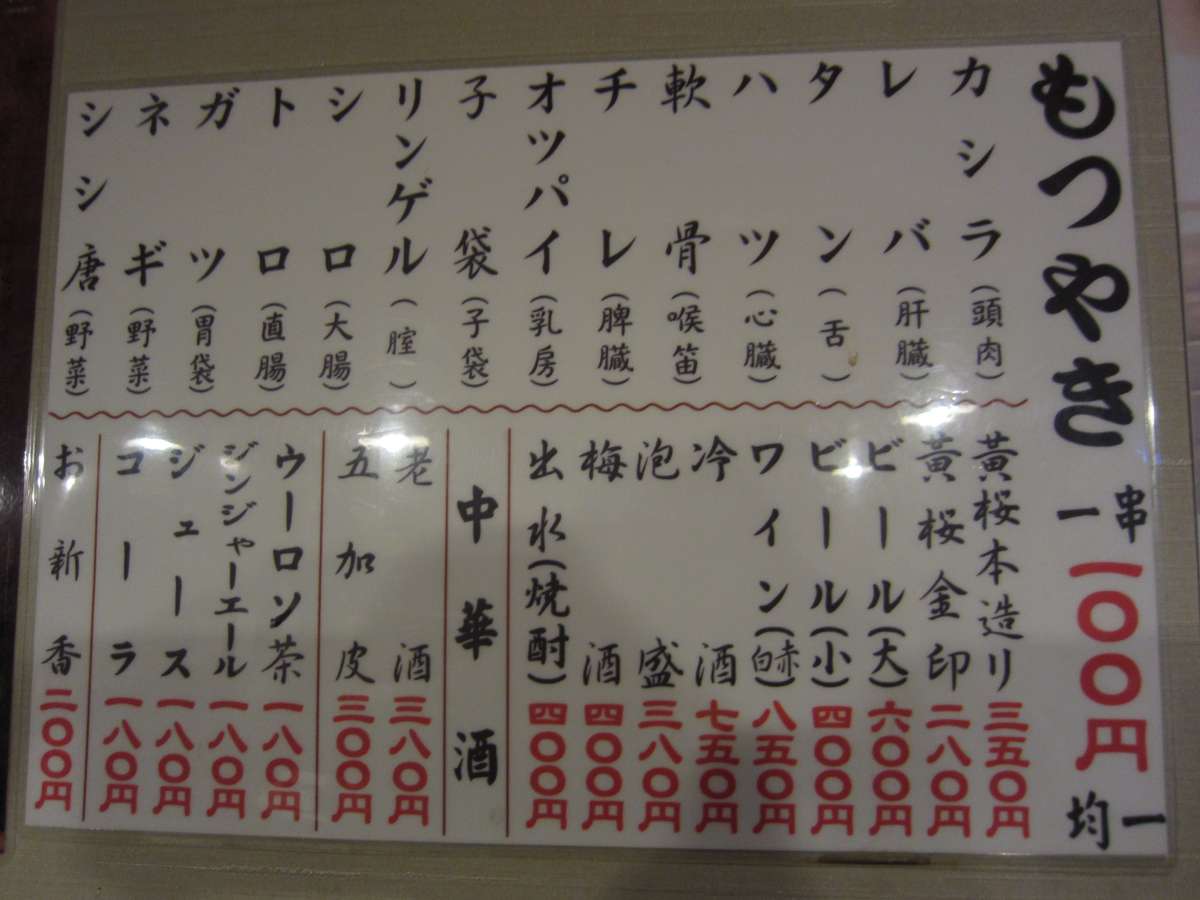 もつやき 一串 一〇〇円 均一
カシラ(頭肉)
レバ(肝臓)
タン(舌)
ハツ(心臓)
軟骨(喉笛)
チレ(脾臓)
オツパイ(乳房)
子袋(子袋)
リンゲル(腟)
シロ(大腸)
トロ(直腸)
ガツ(胃袋)
ネギ(野菜)
シシ唐(野菜)
黄桜本造リ 三五〇円
黄桜金印 二八〇円
ビール(大) 六〇〇円
ビール(小) 四〇〇円
ワイン(赤白) 八五〇円
冷酒 七五〇円
泡盛 三八〇円
梅酒 四〇〇円
出水(焼酎) 四〇〇円
中華酒
老酒 三八〇円
五加皮 三〇〇円
ウーロン茶 一八〇円
ジンジャーエール 一八〇円
ジュース 一八〇円
コーラ 一八〇円
お新香 二〇〇円